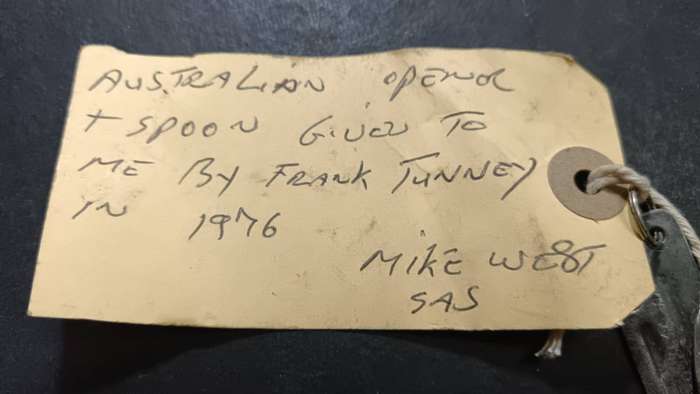 AUSTRALIAN OPENOR
+ SPOON GIVEN TO
ME BY FRANK TUNNEY
IN 1976
MIKE WEST
SAS